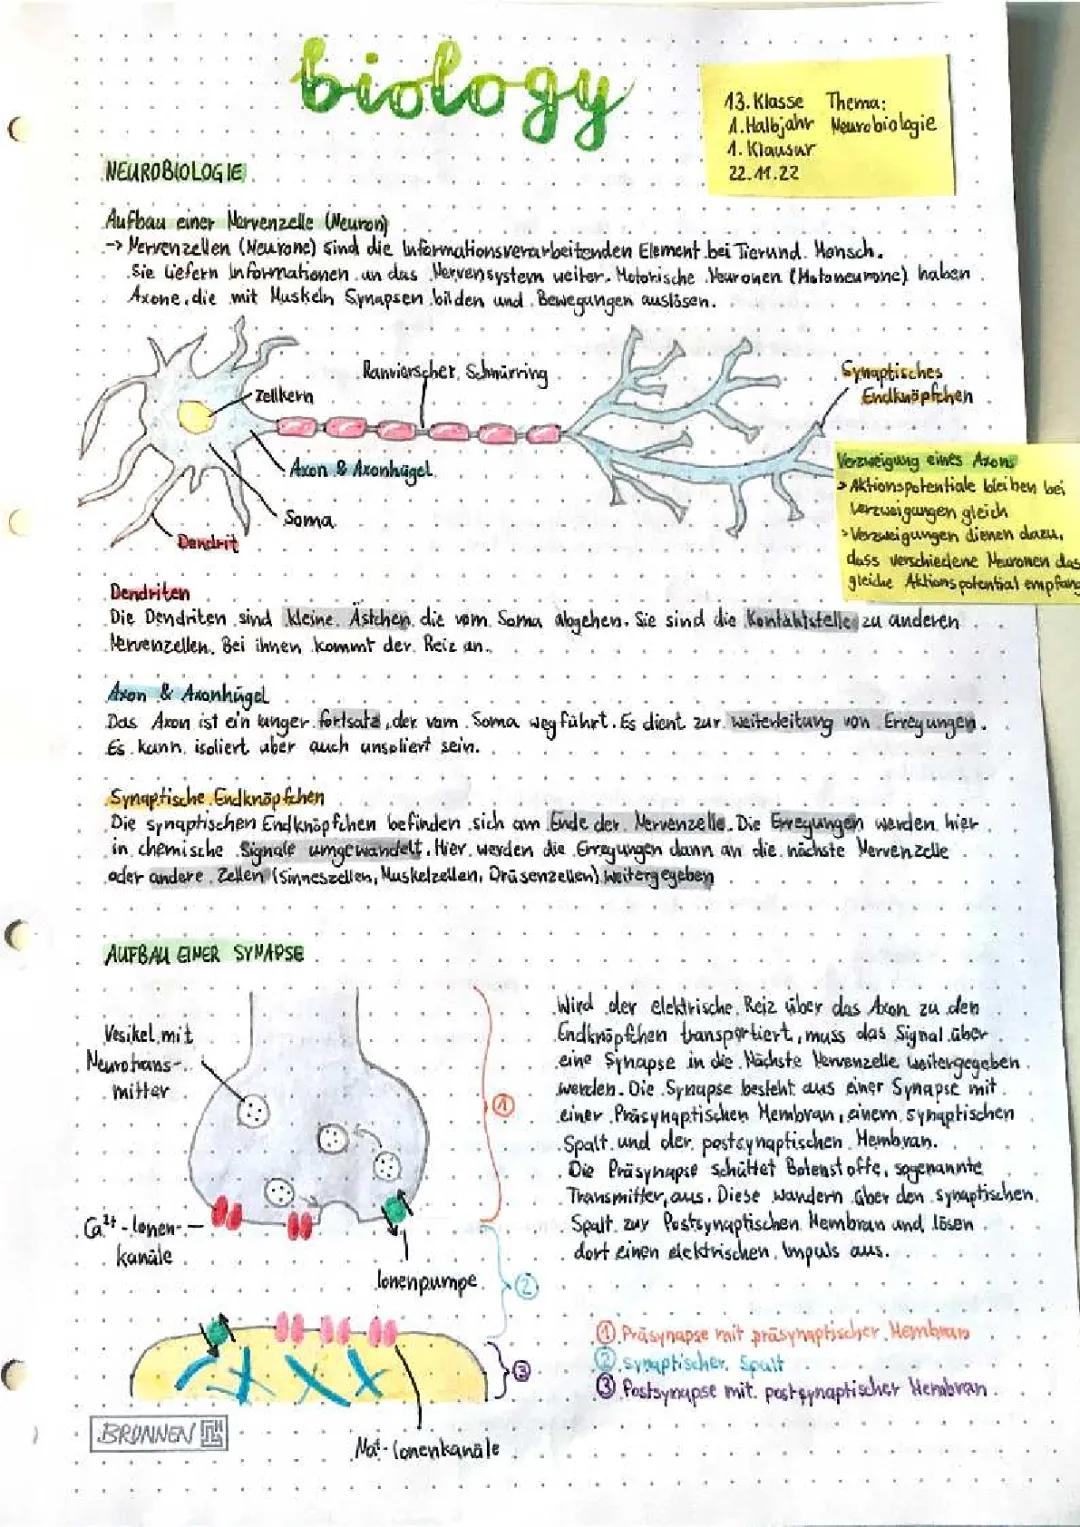 biology
13. Klasse Thema:
1. Halbjahr Neurobiologie
1. Klausur
22.11.22
NEUROBIOLOGIE
Aufbau einer Nervenzelle (Neuron)
→ Nervenzellen (Neurone) sind die Informationsverarbeitenden Element bei Tier und Mensch.
Sie liefern Informationen an das Nervensystem weiter. Motorische Neuronen (Motoneurone) haben
Axone, die mit Muskeln Synapsen bilden und Bewegungen auslösen.
Ranvierscher Schnürring
Zellkern
Synaptisches
Endknöpfchen
Axon & Axonhügel
Soma
Dendrit
Verzweigung eines Axons
> Aktionspotentiale bleiben bei
Verzweigungen gleich
> Verzweigungen dienen dazu,
dass verschiedene Neuronen das
gleiche Aktionspotential empfang
Dendriten
Die Dendriten sind kleine Ästchen, die vom Soma abgehen. Sie sind die Kontaktstelle zu anderen
Nervenzellen. Bei ihnen kommt der Reiz an.
Axon & Axonhügel
Das Axon ist ein langer fortsatz, der vom Soma weg führt. Es dient zur weiterleitung von Erregungen.
Es kann isoliert aber auch unsoliert sein.
Synaptische Endknöpfchen
Die synaptischen Endknöpfchen befinden sich am Ende der Nervenzelle. Die Erregungen werden hier
in chemische Signale umgewandelt. Hier werden die Erregungen dann an die nächste Nervenzelle
oder andere Zellen (Sinneszellen, Muskelzellen, Drüsenzellen) weitergegeben
AUFBAU EINER SYNAPSE
Vesikel mit
Neurotrans-
mitter
①
Ca²⁺-Ionen-
kanäle
Ionenpumpe
②
③
Na⁺-Ionenkanäle
Wird der elektrische Reiz über das Axon zu den
Endknöpfchen transportiert, muss das Signal über
eine Synapse in die Nächste Nervenzelle weitergegeben
werden. Die Synapse besteht aus einer Synapse mit
einer Präsynaptischen Membran, einem synaptischen
Spalt und der postsynaptischen Membran.
Die Präsynapse schüttet Botenstoffe, sogenannte
Transmitter, aus. Diese wandern über den synaptischen
Spalt zur Postsynaptischen Membran und lösen
dort einen elektrischen Impuls aus.
① Präsynapse mit präsynaptischer Membran
② synaptischer Spalt
③ Postsynapse mit postsynaptischer Membran
BRUNNEN